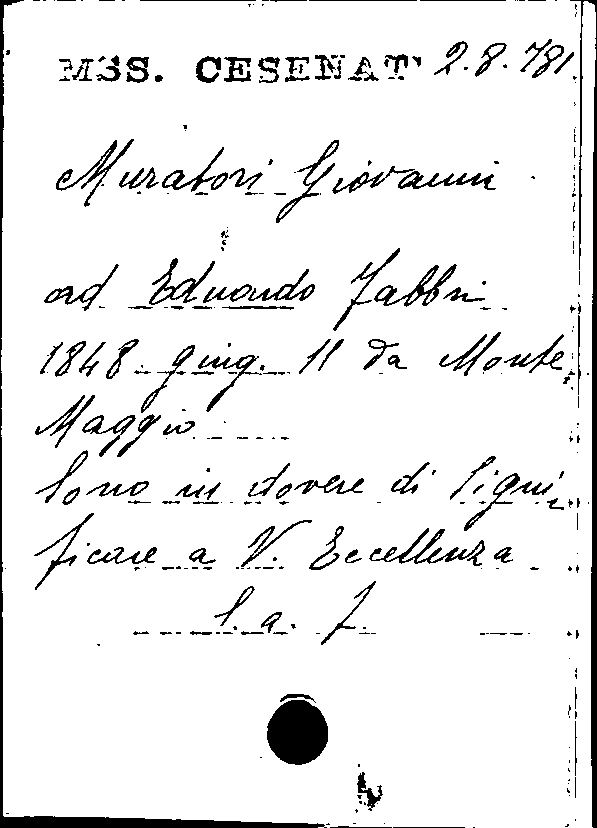 MSS. CESENAT 2.8.781
Muratori Giovanni
ad Eduardo Fabbri
1848 giug. 11 da Monte
Maggio
Sono in dovere di signi-
ficare a V. Eccellenza
l. a. f.